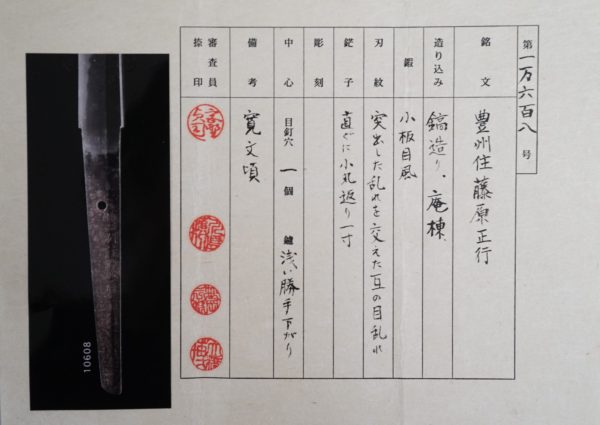 第一万六百八号
銘文 豊州住藤原正行
造り込み 鎬造り、庵棟、
鍛 小板目風
刃紋 突出した乱れを交えた互の目乱れ
鋩子 直ぐに小丸返り一寸
彫刻
中心 目釘穴 一個 鑢 浅い勝手下がり
備考 寛文頃
審査員捺印
10608